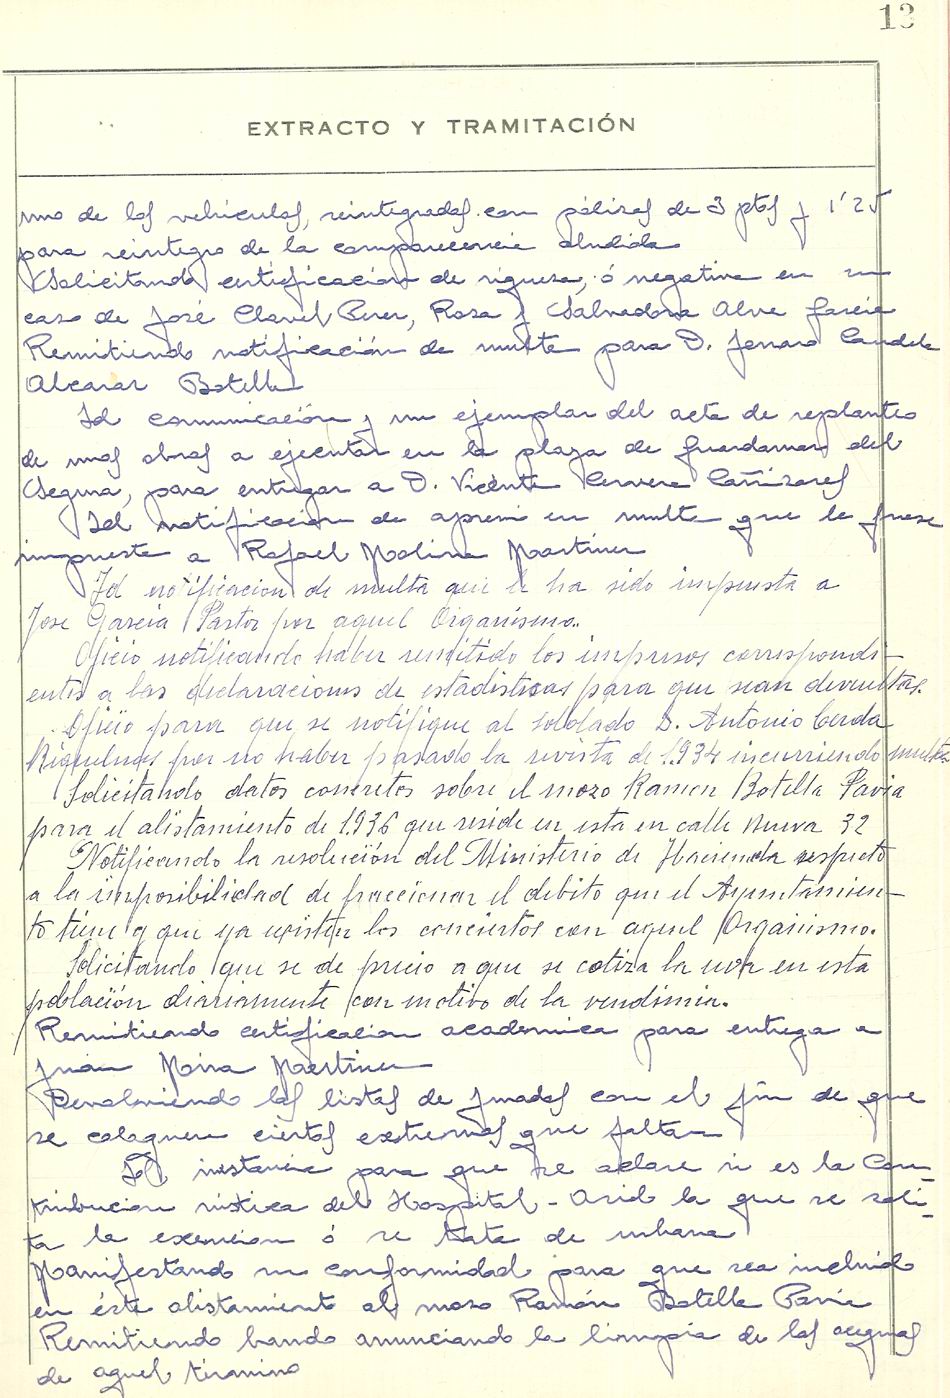 13
EXTRACTO Y TRAMITACIÓN
uno de los vehículos, reintegradas con pólizas de 3 ptas y 1'25
para reintegro de la comparecencia aludida
Solicitando certificación de riqueza, ó negativa en su
caso de José Clavel Perez, Rosa y Salvadora Alve Garcia
Remitiendo notificación de multa para D. Jenaro Candela
Alcaraz Botella
Id comunicación y un ejemplar del acta de replanteo
de unas obras a ejecutar en la plaza de Guardamar del
Segura, para entregar a D. Vicente Cervera Cañizares
Id notificación de apremio en multa que le fuese
impuesta a Rafael Molina Martinez
Id notificacion de multa que le ha sido impuesta a
Jose Garcia Pastor por aquel Organismo.
Oficio notificando haber remitido los impresos correspondi-
entes a las declaraciones de estadisticas para que sean devueltas.
Oficio para que se notifique al soldado D. Antonio Cerda
Riquelmes por no haber pasado la revista de 1.934 incurriendo multa
Solicitando datos concretos sobre el mozo Ramon Botella Pavia
para el alistamiento de 1.936 que reside en esta en calle Nueva 32
Notificando la resolución del Ministerio de Hacienda respecto
a la imposibilidad de fraccionar el debito que el Ayuntamien-
to tiene y que ya existen los conciertos con aquel Organismo.
Solicitando que se de precio a que se cotiza la uva en esta
población diariamente con motivo de la vendimia.
Remitiendo certificacion academica para entrega a
Juan Mira Martinez
Devolviendo las listas de Jurados con el fin de que
se coloquen ciertos extremos que faltan
Id instancia para que se aclare si es la Con-
tribucion rústica del Hospital - Asilo la que se soli-
ta la exencion ó se trata de urbana
Manifestando su conformidad para que sea incluido
en éste alistamiento al mozo Ramón Botella Pavia
Remitiendo bando anunciando la limpia de las acequias
de aquel término